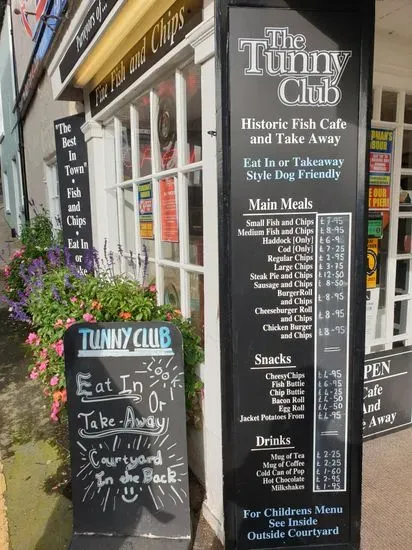 Purveyors of
Fine Fish and Chips
"The
Best in
Town"
Fish
and
Chips
Eat In
or
TUNNY CLUB
Eat In
Or
Take-Away
Courtyard
In the Back
The
Tunny
Club
Historic Fish Cafe
and Take Away
Eat In or Takeaway
Style Dog Friendly
Main Meals
Small Fish and Chips £7-95
Medium Fish and Chips £8-95
Haddock [Only]
Cod [Only] £7-25
Regular Chips £2-95
Large Chips £3-75
Steak Pie and Chips £12-50
Sausage and Chips £8-50
BurgerRoll
and Chips £8-95
Cheeseburger Roll
and Chips £8-95
Chicken Burger
and Chips £8-95
Snacks
CheesyChips £4-95
Fish Buttie £6-95
Chip Buttie £4-25
Bacon Roll £4-50
Egg Roll £4-50
Jacket Potatoes From £4-95
Drinks
Mug of Tea £2-25
Mug of Coffee £2-25
Cold Can of Pop £1-60
Hot Chocolate £2-95
Milkshakes £1-95
For Childrens Menu
See Inside
Outside Courtyard
OUR
PIER!
PEN
Cafe
And
Away